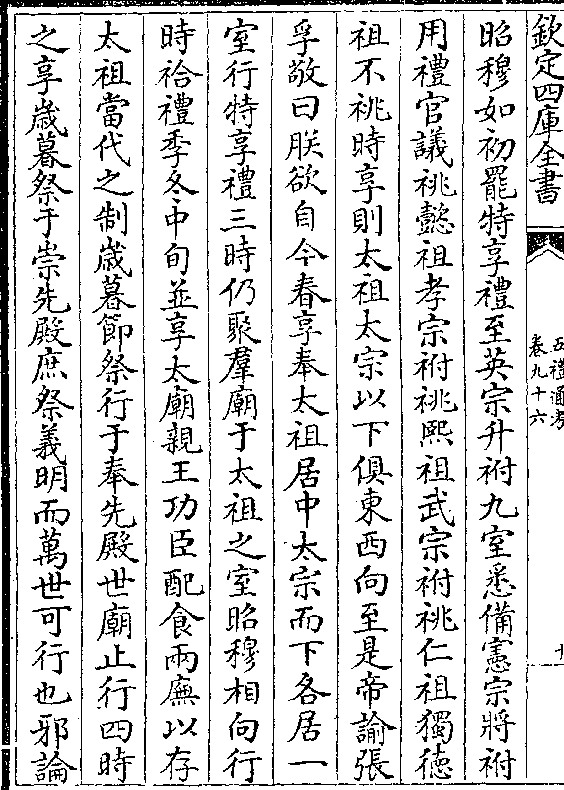 欽定四庫全書
五禮通考
卷九十六
昭穆如初罷特享禮至英宗升祔九室悉備憲宗將祔
用禮官議祧懿祖孝宗祔祧熙祖武宗祔祧仁祖獨徳
祖不祧時享則太祖太宗以下俱東西向至是帝諭張
孚敬曰朕欲自今春享奉太祖居中太宗而下各居一
室行特享禮三時仍聚羣廟于太祖之室昭穆相向行
時祫禮季冬中旬並享太廟親王功臣配食兩廡以存
太祖當代之制歳暮節祭行于奉先殿世廟止行四時
之享歳暮祭于崇先殿庶祭義明而萬世可行也邪論